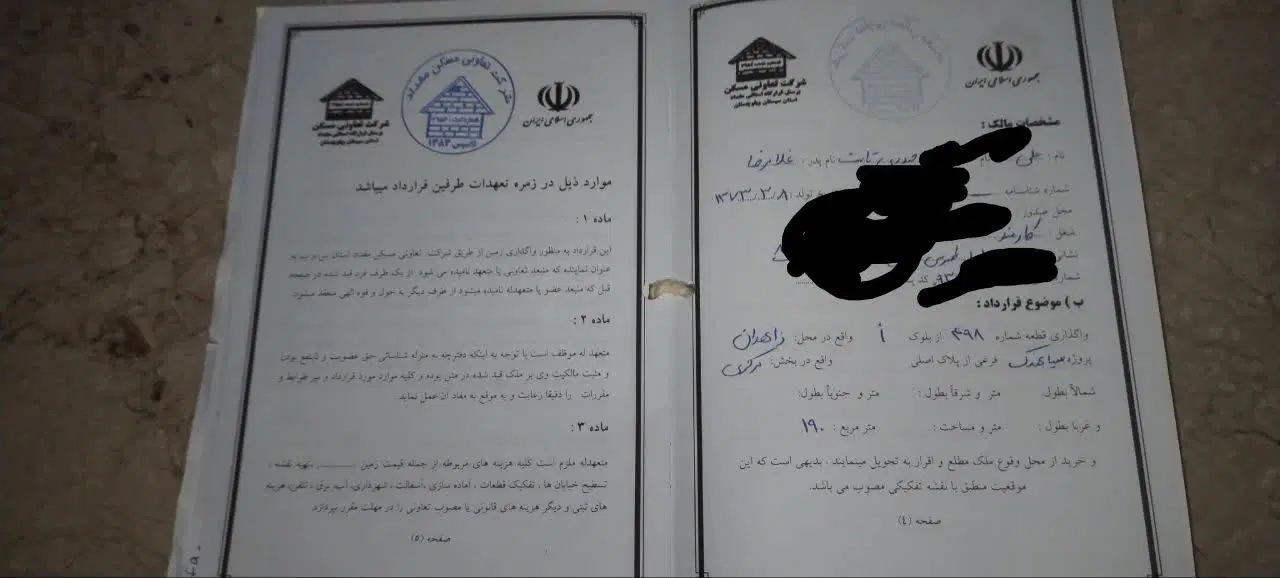 جمهوری اسلامی ایران
شرکت تعاونی مسکن
پرسنل قرارگاه استانی مقداد
استان سیستان وبلوچستان
مشخصات مالک :
نام : علی نام پدر : غلامرضا
شماره شناسنامه تولد : ۱۳۷۳/۲/۸
محل صدور
شغل : کارمند
نشانی
۹۳ کد
ب ) موضوع قرارداد :
واگذاری قطعه شماره ۴۹۸ از بلوک أ واقع در محل: زاهدان
پروژه فرعی از پلاک اصلی واقع در بخش: مرکزی
شمالاً بطول: متر و شرقاً بطول : متر و جنوباً بطول:
و غربا بطول : متر و مساحت : ۱۹۰ متر مربع :
و خرید از محل وقوع ملک مطلع و اقرار به تحویل مینمایند . بدیهی است که این
موقعیت منطبق با نقشه تفکیکی مصوب می باشد.
صفحه (٤)
جمهوری اسلامی ایران
شرکت تعاونی مسکن مقداد
تاسیس ۱۳۸۲
شرکت تعاونی مسکن
پرسنل قرارگاه استانی مقداد
استان سیستان وبلوچستان
موارد ذیل در زمره تعهدات طرفین قرارداد میباشد
ماده ۱ :
این قرارداد به منظور واگذاری زمین از طریق شرکت تعاونی مسکن مقداد استان س و ب به
عنوان نماینده که منبعد تعاونی یا متعهد نامیده می شود از یک طرف فرد قید شده در صفحه
قبل که منبعد عضو یا متعهدله نامیده میشود از طرف دیگر به حول و قوه الهی منعقد میشود.
ماده ۲ :
متعهد له موظف است با توجه به اینکه دفترچه به منزله شناسائی حق عضویت و ذینفع بودن
و مثبت مالکیت وی بر ملک قید شده در متن بوده و کلیه موارد مورد قرارداد و نیز ضوابط و
مقررات را دقیقا رعایت و به موقع به مفاد آن عمل نماید
ماده ۳ :
متعهدله ملزم است کلیه هزینه های مربوطه از جمله قیمت زمین ............ ,تهیه نقشه ،
تسطیح خیابان ها ، تفکیک قطعات ، آماده سازی ،آسفالت ، شهرداری، آب، برق ، تلفن، هزینه
های ثبتی و دیگر هزینه های قانونی یا مصوب تعاونی را در مهلت مقرر بپردازد.
صفحه (٥)